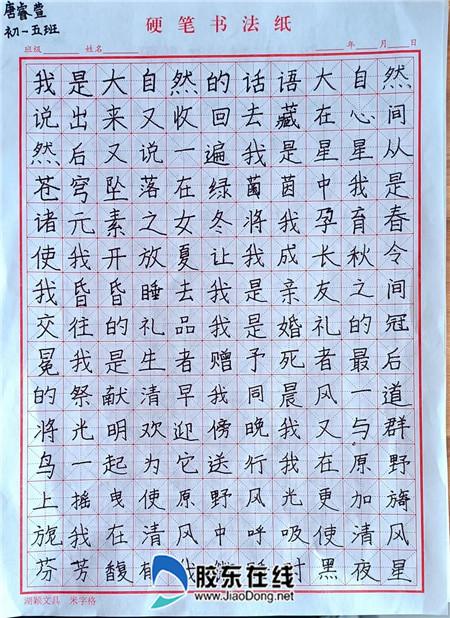 唐睿萱
初一五班
硬笔书法纸
班级 姓名 年 月 日
我是大自然的话语大自然
说出来又收回去藏在心间
然后又说一遍我是星星从
苍穹坠落在绿菌茵中我是
诸元素之女冬将我孕育春
使我开放夏让我成长秋令
我昏昏睡去我是亲友之间
交往的礼品我是婚礼的冠
冕我是生者赠予死者最后
的祭献清早我同晨风一道
将光明欢迎傍晚我又与群
鸟一起为它送行我在原野
上摇曳使原野风光更加旖
旎我在清风中呼吸使清风
芬芳馥 我 时黑夜星
胶东在线
www.JiaoDong.net
湖颖文具 米字格